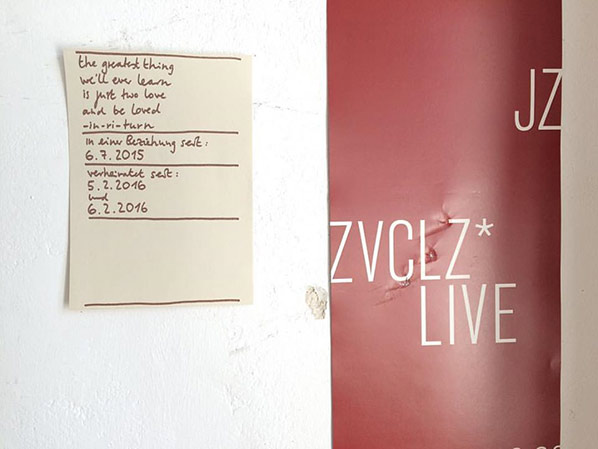 the greatest thing
we'll ever learn
is just two love
and be loved
-in-ri-turn
in einer Beziehung seit:
6.7.2015
verheiratet seit:
5.2.2016
und
6.2.2016
JZ
ZVCLZ*
LIVE